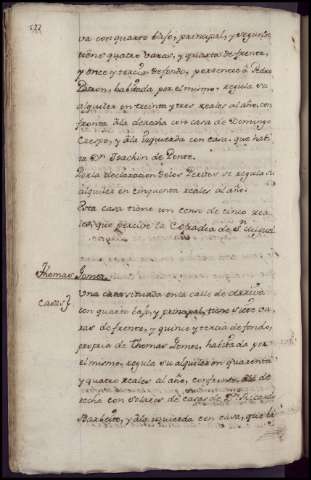 va con quarto bajo, principal, y segundo
tiene quatro varas, y quarta de frente,
y once y tercia de fondo, pertenece à Pedro
havitada por el mismo, regula su
alquiler en treinta y tres reales al año, con
fronta à la derecha con casa de Domingo
Crespo, y à la izquierda con casa, que havi
ta Dn. Joachin de Ponte.
Por la declarazion de los Peritos se regula su
alquiler en cinquenta reales al año.
Esta casa tiene un censo de cinco rea
les que percive la Cofradia de Sn. Miguel
Thomas Gomez
Casas
Una casa situada en la calle de arriva
con quarto bajo, y principal, tiene siete va
ras de frente, y quince y tercia de fondo,
propia de Thomas Gomez, havitada por
el mismo, regula su alquiler en quarenta
y quatro reales al año, confronta, à la de
recha con solares de casas de Dn.
Barheito, y à la izquierda con casa, que ha